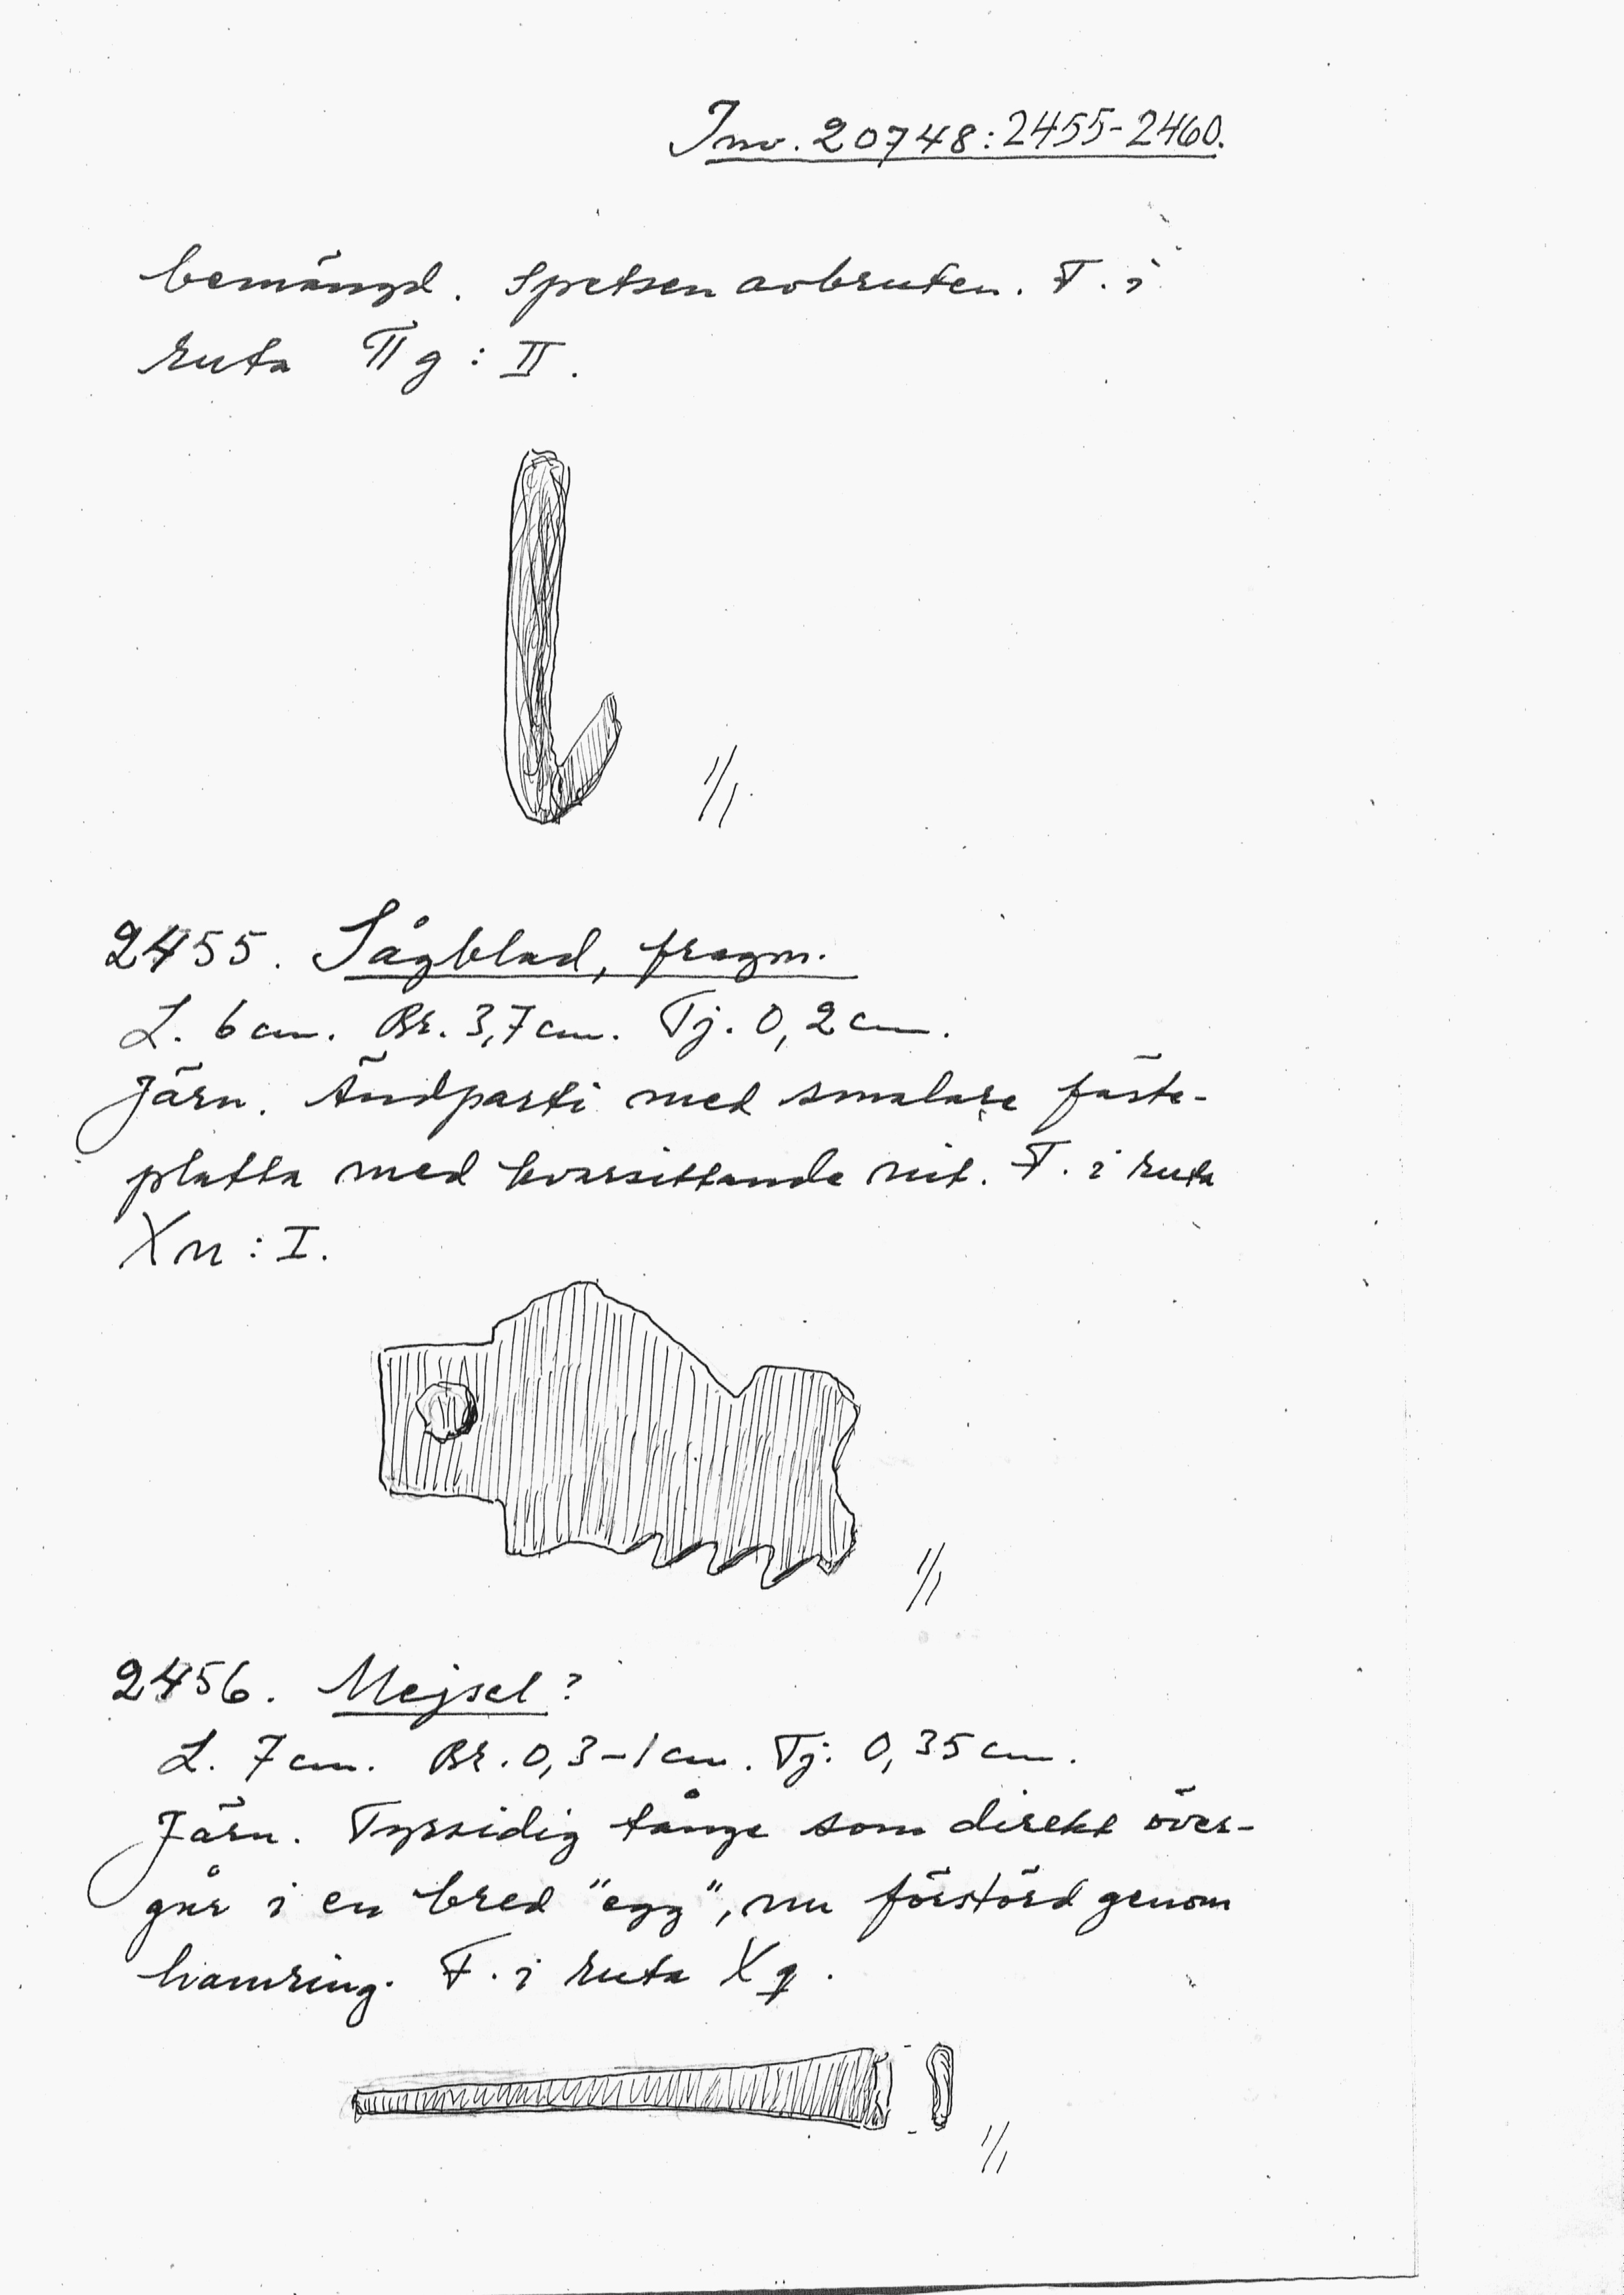 Inv. 20748:2455-2460.
bemängd. Spetsen avbruten. F. i
ruta TT g : II.
1/1
2455. Sågblad, fragm.
L. 6 cm. Br. 3,7 cm. Tj. 0,2 cm.
Järn. Ändparti med smalare fäste-
platta med kvarsittande nit. F. i ruta
X n : I.
1/1
2456. Mejsel?
L. 7 cm. Br. 0,3-1 cm. Tj. 0,35 cm.
Järn. Fyrsidig tånge som direkt över-
går i en bred "egg", nu förstörd genom
hamring. F. i ruta X q.
1/1